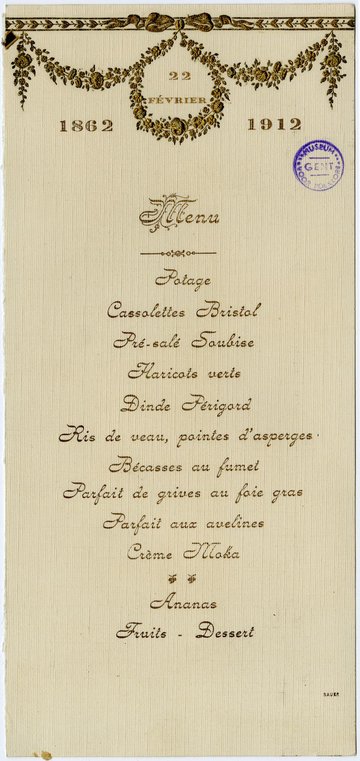 22
FÉVRIER
1862 1912
MUSEUM
GENT
VOOR FOLKLORE
Menu
Potage
Cassolettes Bristol
Pré-salé Soubise
Haricots verts
Dinde Périgord
Ris de veau, pointes d'asperges
Bécasses au fumet
Parfait de grives au foie gras
Parfait aux avelines
Crème Moka
Ananas
Fruits - Dessert